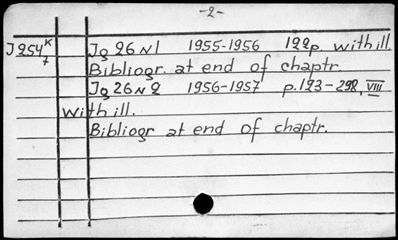 -2-
J254 K/7 Jg 26 N1 1955-1956 122p. with ill.
Bibliogr. at end of chaptr.
Jg 26 N 2 1956-1957 p.123-298, VIII
with ill.
Bibliogr at end of chaptr.